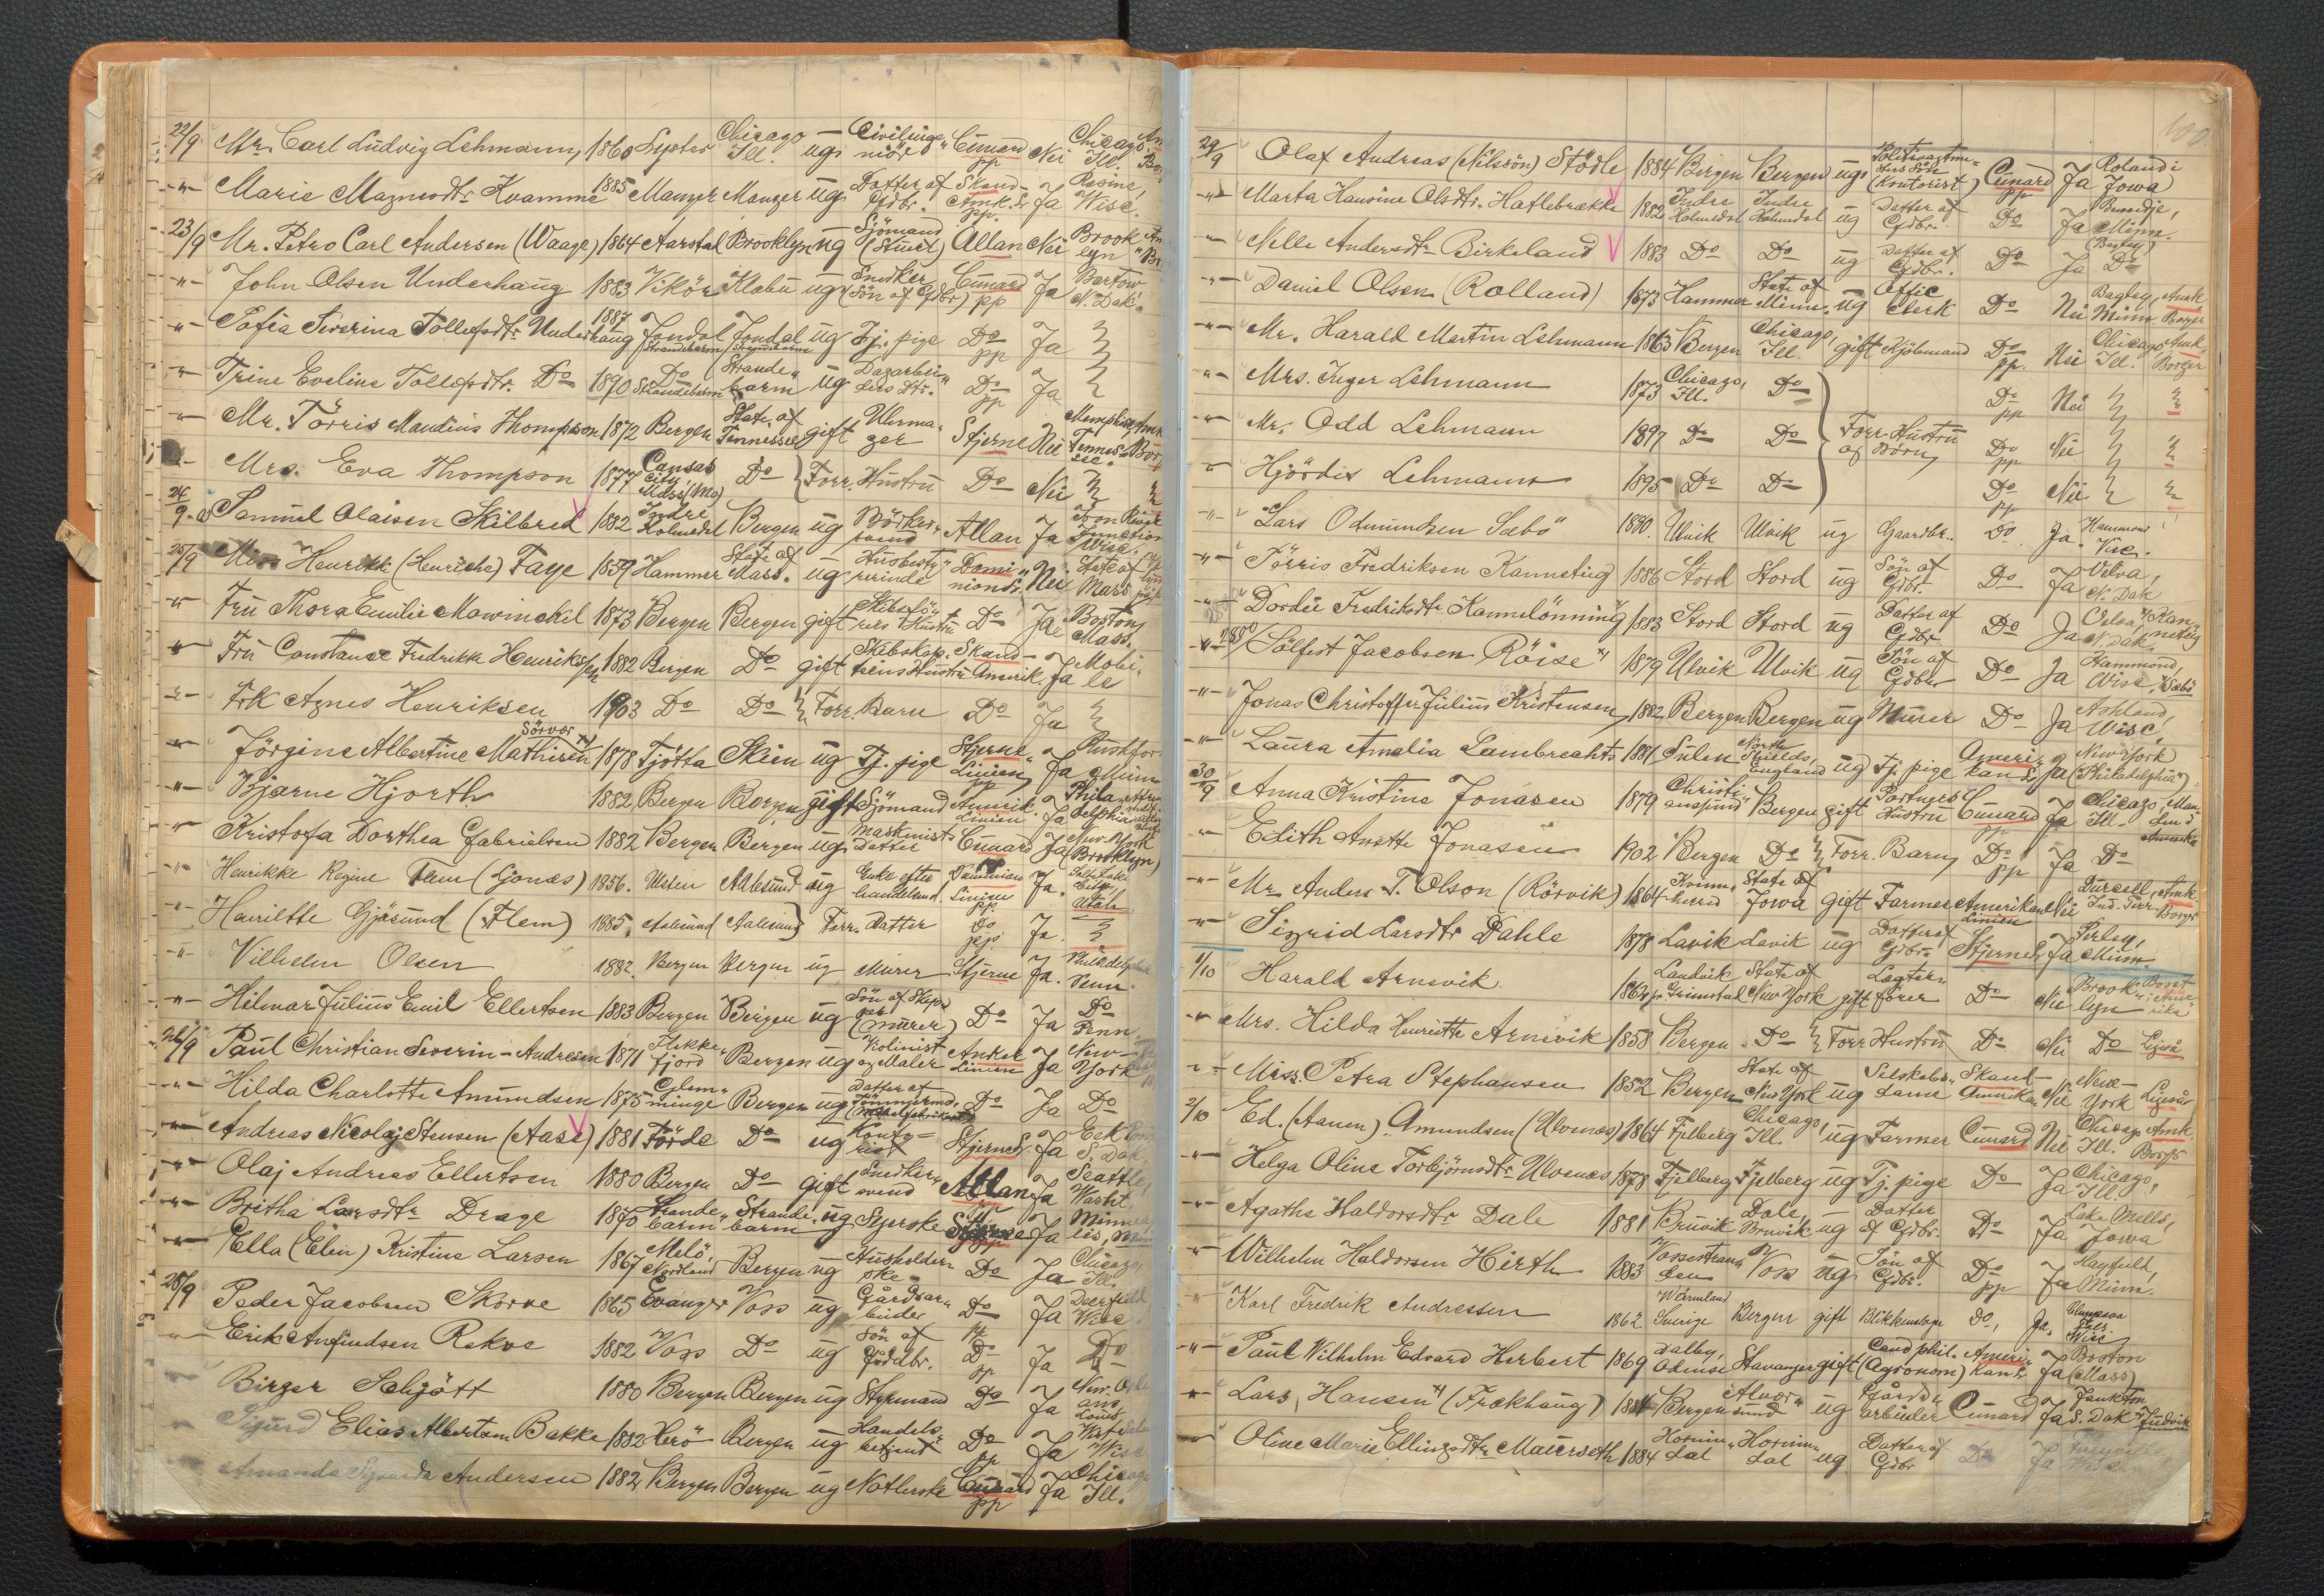 22/9 Mr. Carl Ludvig Lehmann, 1860 Lyster Chicago Ill. ug Civilingeniör Cunard pp Nei Chicago, Ill.
-"- Marie Magnesdtr. Kvamme 1885 Manger Manger ug Datter af Gdbr. Skand. Amk. pp. Ja Racine, Wisc.
23/9 Mr. Petro Carl Andersen (Waage) 1864 Aarstad Brooklyn ug Sjömand (Stuert) Allan Nei Brooklyn
-"- John Olsen Underhaug 1883 Vikör Klæbu ug Snedker (Sön af Gdbr) Cunard pp Ja Bartow N. Dak.
-"- Sofia Severina Tollefsdtr. Underhaug 1887 Jondal Strandebarm Jondal Strandebarm ug Tj. pige Do pp Ja
-"- Trine Eveline Tollefsdtr. Do 1890 Do Strandebarm Strandebarm ug Dagarbeiders Dtr. Do pp Ja
-"- Mr. Törris Maudius Thompson 1872 Bergen State of Tennessee gift Uhrmager Stjerne Nei Memphis, Tennessee.
-"- Mrs. Eva Thompson 1877 Cansas City, (Mo) Do Forr. Hustru Do Nei
24/9 Samuel Olaisen Skilbred 1882 Indre Holmedal Bergen ug Bödkersvend Allan Ja Iron River Junction Wisc.
25/9 Miss Henrikk (Henriche) Faye 1859 Hammer State of Mass. ug Husbestyrerinde Dominion Nei State of Mass
-"- Fru Thora Emilie Mowinckel 1873 Bergen Bergen gift Skibsförers Hustru Do Ja Boston, Mass.
-"- Fru Constance Fredrikke Henriksen 1882 Bergen Do gift Skibskapteins Hustru Skand. Amerik. Ja Mobile
-"- Frk Agnes Henriksen 1903 Do Do Forr. Barn Do Ja
-"- Jörgine Albertine Mathisen Sörvor x) 1878 Tjötta Skien ug Tj. pige Stjerne Linien pp Ja Rushford Minn
-"- Bjarne Hjorth 1882 Bergen Bergen gift Sjömand Amerik. Linien Ja Philadelphia
-"- Kristofa Dorthea Gabrielsen 1882 Bergen Bergen ug Maskinists Datter Cunard Ja New York (Brooklyn)
-"- Henrikke Regine Flem (Gjonæs) 1856. Aalesund ug Enke efter handelsmd. Linien pp. Ja. Salt Lake City, Utah
-"- Henriette Gjøsund (Flem) 1885. Aalesund Aalesund Forr. Datter Do pp. Ja.
-"- Vilhelm Olsen 1882. Bergen Bergen ug Murer Stjerne Ja. Philadelphia Penn.
-"- Hilmar Julius Emil Ellertsen 1883 Bergen Bergen ug Sön af Skipper (Murer) Do Ja Do Penn
26/9 Paul Christian Severin-Andresen 1871 Flekkefjord Bergen ug Violinist og Maler Linien Ja New-York
-"- Hilda Charlotte Amundsen 1875 Bergen ug Datter af Tömmermd. Do Ja Do
-"- Andreas Nicolaj Stensen (Aase) 1881 Förde Do ug Kontorist Stjerne Ja S. Dak.
-"- Olaj Andreas Ellertsen 1880 Bergen Do gift Snedkersvend Allan Ja Seattle, Washt
-"- Britha Larsdtr. Drage 1870 Strandebarm Strandebarm ug Syerske Stjerne pp Ja
-"- Ella (Elen) Kristine Larsen 1867 Melö, Nordland Bergen ug Husholderske Do Ja Chicago, Ill.
28/9 Peder Jacobsen Skorve 1865 Evanger Voss ug Gårdsarbeider Do Ja Deerfield Wisc.
-"- Erik Anfindsen Rekve 1882 Voss Do ug Sön af Gårdbr. Do pp Ja Do
Birger Schjött 1880 Bergen Bergen ug Styrmand Do Ja New-Orleans Louis.
Sigurd Elias Albertsen Bakke 1882 Herö Bergen ug Handelsbetjent Do pp Ja Wisc
Amanda Andersen 1882 Bergen Bergen ug Notlerske Cunard pp Ja Chicago Ill.
180
29/9 Olaf Andreas (Nilssön) Stödle 1884 Bergen Bergen ug Sön (Kontorist) Cunard pp Ja Roland i Iowa
-"- Marta Hansine Olsdtr. Hatlebrække 1882 Indre Holmedal Indre Holmedal ug Datter af Gdbr. Do Ja Bemidje, Minn.
-"- Nelle Andersdtr. Birkeland 1883 Do Do ug Datter af Gdbr. Do Ja (Bagley) Do
-"- Daniel Olsen (Rolland) 1873 Hammer State of Minn. ug Offic Clerk Do Nei Bagley, Minn Amk Borger
-"- Mr. Harald Martin Lehmann 1863 Bergen Chicago, Ill. gift Kjöbmand Do pp. Nei Chicago, Ill. Amk Borger
-"- Mrs. Inger Lehmann 1873 Chicago, Ill. Do Do pp Nei
-"- Mr. Odd Lehmann 1897 Do Do Forr. Hustru og Börn Do pp Nei
-"- Hjördis Lehmann 1895 Do Do Do pp Nei
-"- Lars Odmundsen Sæbö 1880. Ulvik Ulvik ug Gaardbr. Do. Ja. Hammond Visc.
-"- Törris Fredriksen Kanneteig 1886 Stord Stord ug Sön af Gdbr. Do Ja Velva, N. Dak
-"- Dordei Fredriksdtr. Kannelönning 1883 Stord Stord ug Datter af Gdbr. Do Ja Velva N. Dak. x) Kanneteig
-"- Sölfest Jacobsen Röise x) 1879 Ulvik Ulvik ug Sön af Gdbr Do Ja Hammond, Wisc. x) Sæbö
-"- Jonas Christoffer Julius Kristensen, 1882 Bergen Bergen ug Murer Do Ja Ashland, Wisc.
-"- Laura Amalia Lambrechts 1881 Sulen North Shields, England ug Tj. pige Amerikan Ja New York (Philadelphia)
30/9 Anna Kristine Jonasen 1879 Christianssund Bergen gift Hustru Cunard pp Ja Chicago, Ill.
-"- Edith Anette Jonasen 1902 Bergen Do Forr. Barn Do pp Ja Do
-"- Mr. Anders T. Olson (Rörvik) 1864 Kvinnherred State of Iowa gift Farmer Amerikan Linien Nei Durcell, Ind. Terr. Amk. Borger
-"- Sigrid Larsdtr Dahle 1878 Lavik Lavik ug Datter af Gdbr. Stjerne Ja Perley, Minn.
1/10 Harald Arnevik 1863 Landvik pr Grimstad State of New York gift Lægterförer Do Nei Brooklyn Bosat i Amerika
-"- Mrs. Hilda Henriette Arnevik 1858 Bergen Do Forr Hustru Do Nei Do Ligeså
-"- Miss. Petra Stephansen 1852 Bergen State of New York ug Selskabsdame Skand. Amerika Nei New-York Ligeså
2/10 Ed. (Aanen) Amundsen (Ulvenæs) 1864 Fjelberg Chicago, Ill. ug Farmer Cunard Nei Chicago Ill. Amk. Borger
-"- Helga Oline Torbjörnsdtr. Ulvenæs 1878 Fjelberg Fjelberg ug Tj. pige Do Ja Chicago, Ill.
-"- Agatha Haldorsdtr Dale 1881 Bruvik Dale, Bruvik ug Datter af Gdbr. Do Ja Lake Mills, Iowa
-"- Wilhelm Haldorsen Hirth 1883 Vossestranden Voss ug Sön af Gdbr. Do pp Ja Hayfield, Minn.
Karl Fredrik Andressen 1862 Wärmland Sverige Bergen gift Blikkenslager Do, Ja. Wisc
-"- Paul Wilhelm Edvard Herbert 1869 Dalby, Odense Stavanger gift Cand phil. (Agronom) Amerikan Ja Boston (Mass)
-"- Lars Hansen x) (Frækhaug) 1884 Bergen Alversund ug Gårdsarbeider Cunard Do Ja Yankton S. Dak
-"- Oline Marie Ellingsdtr. Maurseth 1884 Hornindal Hornindal ug Datter af Gdbr Do Ja Wisc.